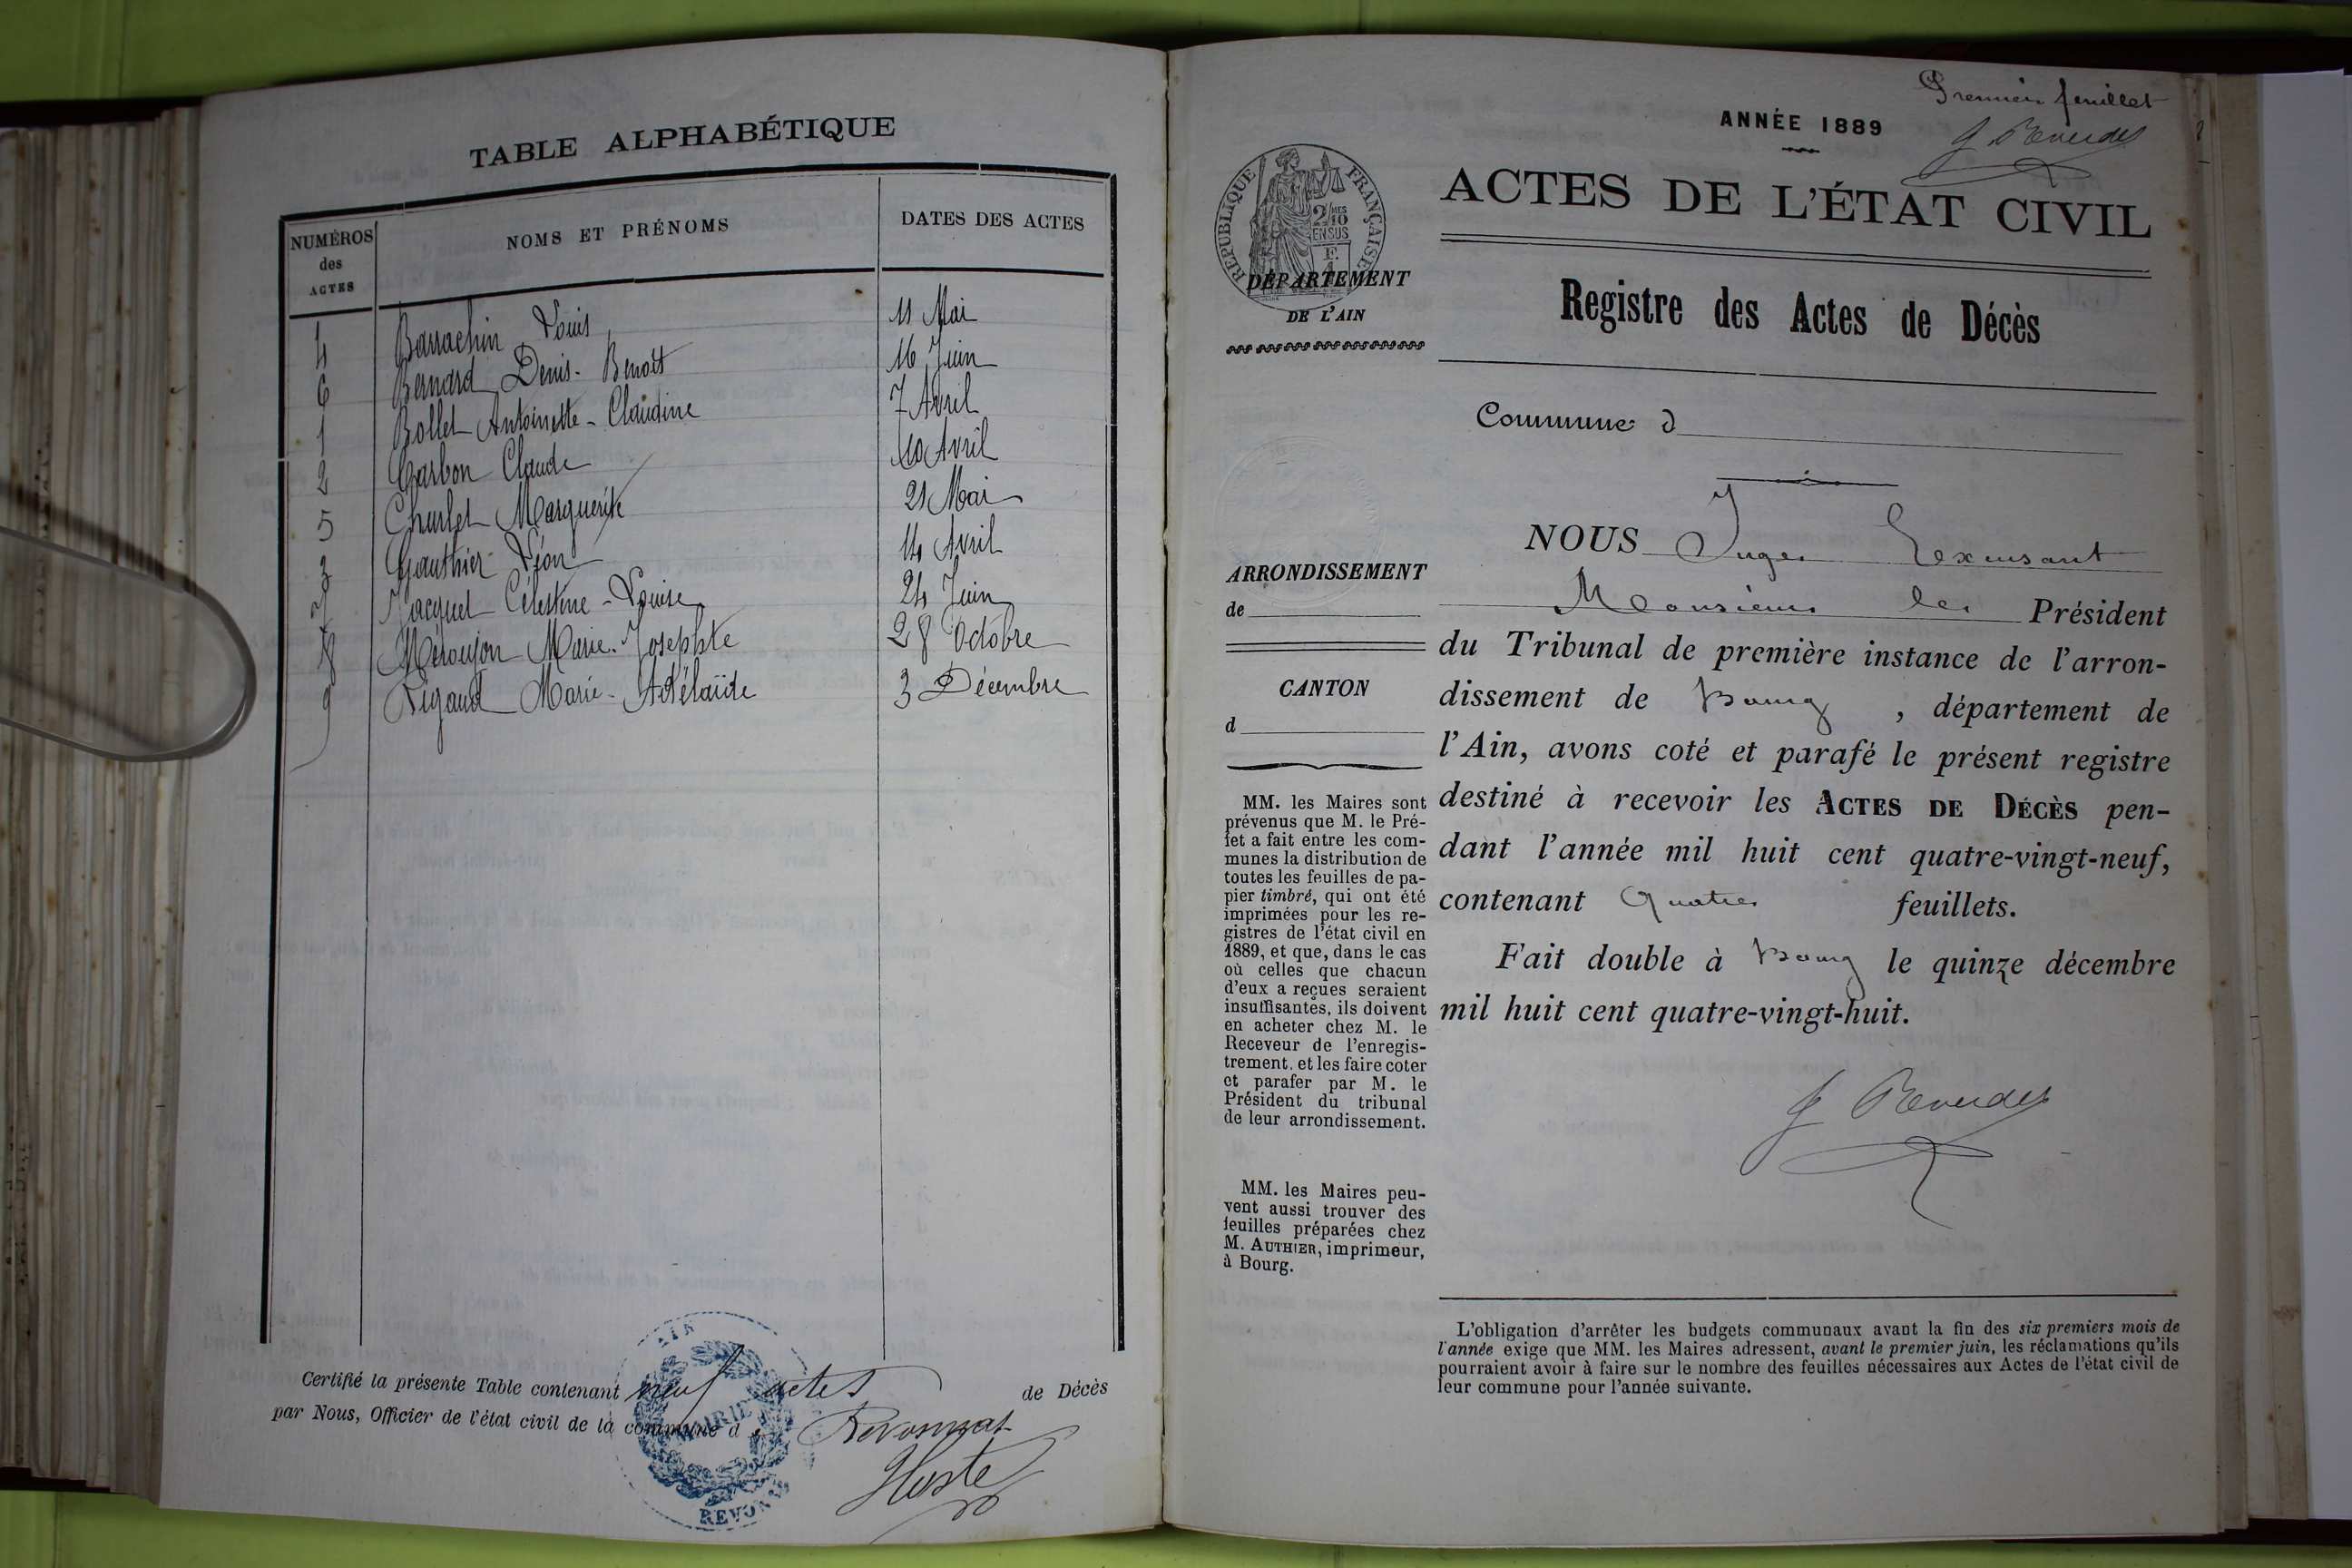 TABLE ALPHABÉTIQUE
NUMÉROS des ACTES NOMS ET PRÉNOMS DATES DES ACTES
4 Barrachin Louis 11 Mai
6 Bernard Denis-Benoit 16 Juin
1 Bollet Antoinette-Claudine 7 Avril
2 Carbon Claude 10 Avril
5 Charlet Marguerite 21 Mai
3 Gauthier Léon 14 Avril
7 Jacquet Célestine-Louise 24 Juin
8 Marie-Josephte 28 Octobre
9 Rigaud Marie-Adélaïde 3 Décembre
Certifié la présente Table contenant neuf actes de Décès
par Nous, Officier de l'état civil de la commune d Revonnat
Hoste
MAIRIE
REVON
Premier feuillet
ANNÉE 1889
ACTES DE L'ÉTAT CIVIL
RÉPUBLIQUE FRANÇAISE
2/10MES
EN SUS
DÉPARTEMENT
DE L'AIN
Registre des Actes de Décès
Commune d
ARRONDISSEMENT
de
CANTON
d
MM. les Maires sont
prévenus que M. le Pré-
fet a fait entre les com-
munes la distribution de
toutes les feuilles de pa-
pier timbré, qui ont été
imprimées pour les re-
gistres de l'état civil en
1889, et que, dans le cas
où celles que chacun
d'eux a reçues seraient
insuffisantes, ils doivent
en acheter chez M. le
Receveur de l'enregis-
trement, et les faire coter
et parafer par M. le
Président du tribunal
de leur arrondissement.
MM. les Maires peu-
vent aussi trouver des
feuilles préparées chez
M. AUTHIER, imprimeur,
à Bourg.
NOUS Juge
Monsieur le Président
du Tribunal de première instance de l'arron-
dissement de Bourg, département de
l'Ain, avons coté et parafé le présent registre
destiné à recevoir les ACTES DE DÉCÈS pen-
dant l'année mil huit cent quatre-vingt-neuf,
contenant Quatre feuillets.
Fait double à Bourg le quinze décembre
mil huit cent quatre-vingt-huit.
L'obligation d'arrêter les budgets communaux avant la fin des six premiers mois de
l'année exige que MM. les Maires adressent, avant le premier juin, les réclamations qu'ils
pourraient avoir à faire sur le nombre des feuilles nécessaires aux Actes de l'état civil de
leur commune pour l'année suivante.